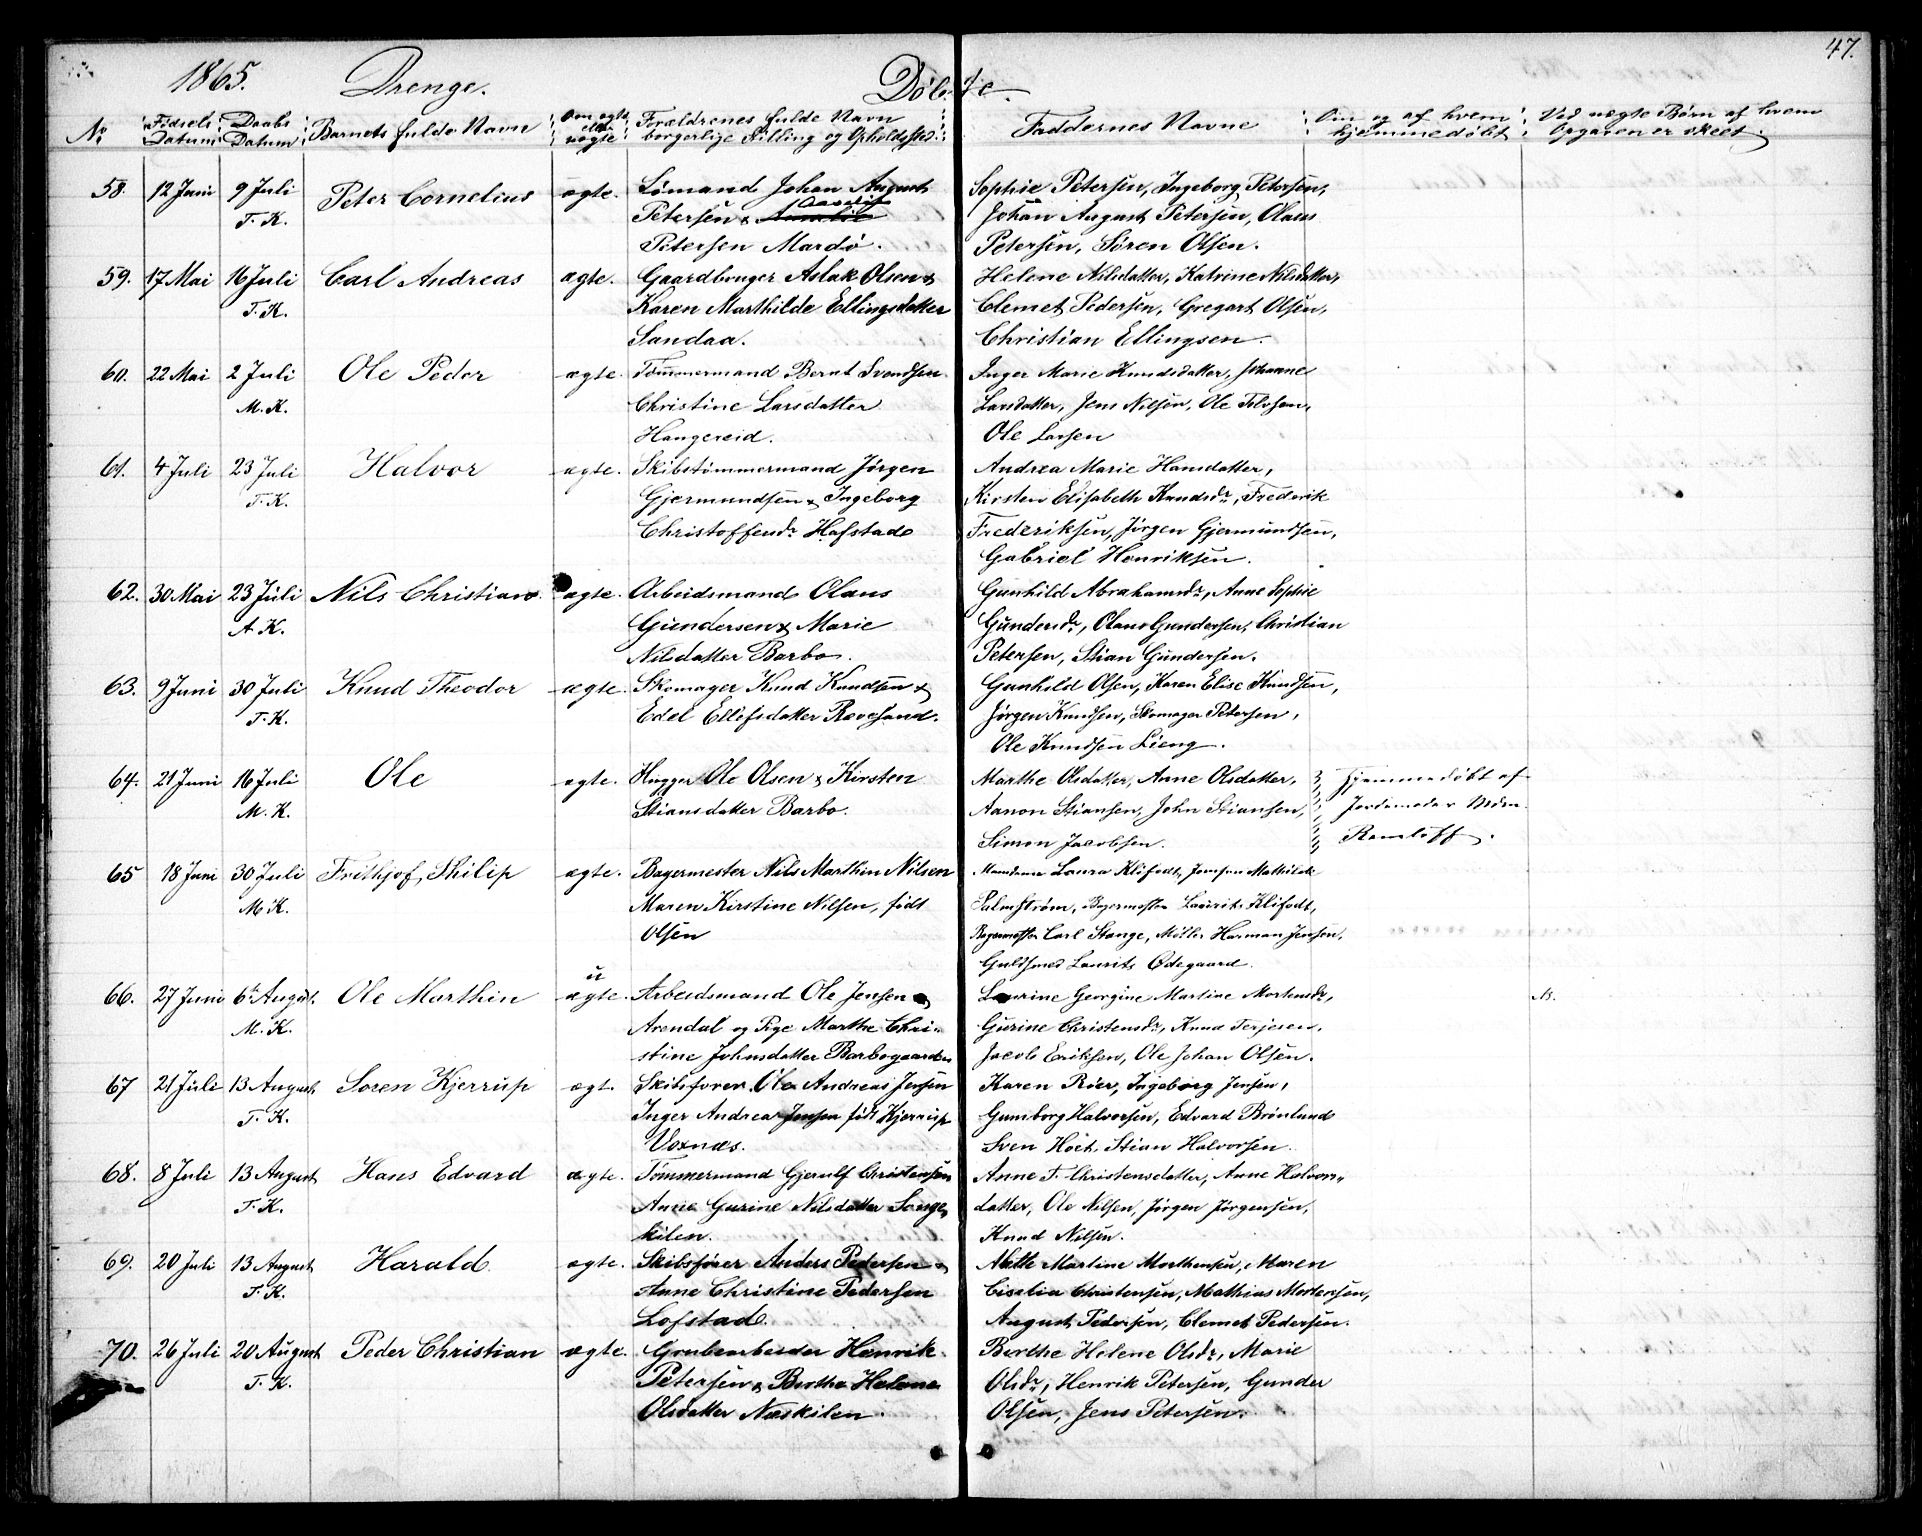 47.
1865. Drenge. Døbte.
No Fødsels Datum Daabs Datum Barnets fulde Navn Om ægte eller uægte Forældrenes fulde Navn borgerlige Stilling og Opholdssted. Faddernes Navne Om og af hvem hjemmedøbt Ved uægte Børn af hvem Opgaven er skeet.
58. 12 Juni 9 Juli Peter Cornelius ægte. Sømand Johan August Sophie Petersen, Ingeborg Petersen,
T. K. Petersen & Petersen Mardø. Johan August Petersen, Olaus
Petersen, Søren Olsen.
59. 17 Mai 16 Juli Carl Andreas ægte. Gaardbruger Aslak Olsen & Helene Nilsdatter, Katrine Nilsdatter,
T. K. Karen Marthilde Ellingsdatter Clemet Pedersen, Gregart Olsen,
Sandaa. Christian Ellingsen.
60. 22 Mai 2 Juli Ole Peder ægte. Tømmermand Bernt Svendsen Inger Marie Knudsdatter, Johanne
M. K. Christine Larsdatter Larsdatter, Jens Nilsen, Ole Tolvsen,
Hangereid. Ole Larsen
61. 4 Juli 23 Juli Halvor ægte. Skibstømmermand Jørgen Andrea Marie Hansdatter,
T. K. Gjermundsen & Ingeborg Kirsten Elisabeth Knudsdr, Frederik
Christoffersdr Hafstad Frederiksen, Jørgen Gjermundsen,
Gabriel Henriksen.
62. 30 Mai 23 Juli Nils Christian ægte. Arbeidsmand Olaus Gunhild Abrahamsdr, Anne Sophie
A. K. Gundersen & Marie Gundersdr, Olaus Gundersen, Christian
Nilsdatter Barbo. Petersen, Stian Gundersen.
63. 9 Juni 30 Juli Knud Theodor ægte. Skomager Knud Knudsen & Gunhild Olsen, Karen Elise Knudsen,
T. K. Edel Ellefsdatter Revesand. Jørgen Knudsen, Skomager Petersen,
Ole Knudsen Lieng.
64. 21 Juni 16 Juli Ole ægte. Hugger Ole Olsen & Kirsten Marthe Olsdatter, Anne Olsdatter, hjemmedøbt af
M. K. Stiansdatter Barbo. Aanon Stiansen, John Stiansen, Jordemoder Mdm.
Simon Jacobsen. Ramløff.
65 18 Juni 30 Juli Frithjof, Philip ægte. Bagermester Nils Marthin Nilsen Madame Laura Klifodt, Jomfru Mathilde
M. K. Maren Kirstine Nilsen, født Palmstrøm, Bagermester Lauritz Klifodt,
Olsen Bagermester Carl Stange, Møller Harman Jensen,
Guldsmed Laurits Ødegaard.
66. 27 Juni 6te August. Ole Marthin uægte. Arbeidsmand Ole Jensen Laurine Georgine Martine Mortensdr,
M. K. Arendal og Pige Marthe Chri- Gurine Christensdr, Knud Terjesen,
stine Johnsdatter Barbogaarden Jacob Eriksen, Ole Johan Olsen.
67 21 Juli 13 August Søren Kjerrup ægt. Skibsfører Ole Andreas Jensen Karen Röer, Ingeborg Jensen,
T. K. Inger Andrea Jensen født Kjerrup Gumborg Halvorsen, Edvard Brönlund
Voxnæs. Sven Hoch, Stian Halvorsen.
68. 8 Juli 13 August Hans Edvard ægte. Tømmermand Gjerulf Christensen Anne T. Christensdatter, Anne Halvors-
T. K. Anne Gurine Nilsdatter Songe- datter, Ole Nilsen, Jørgen Jørgensen,
kilen. Knud Nilsen.
69. 20 Juli 13 August Harald ægte. Skibsfører Anders Pedersen & Mette Martine Morthensen, Maren
T. K. Anne Christine Pedersen Ciselia Christensen, Mathias Mortensen,
Lofstad. August Pedersen, Clemet Pedersen.
70. 26 Juli 20 August Peder Christian ægte. Grubearbeider Henrik Berthe Helene Olsdr, Marie
T. K. Petersen & Berthe Helene Olsdr, Henrik Petersen, Gunder
Olsdatter Næskilen. Olsen, Jens Petersen.